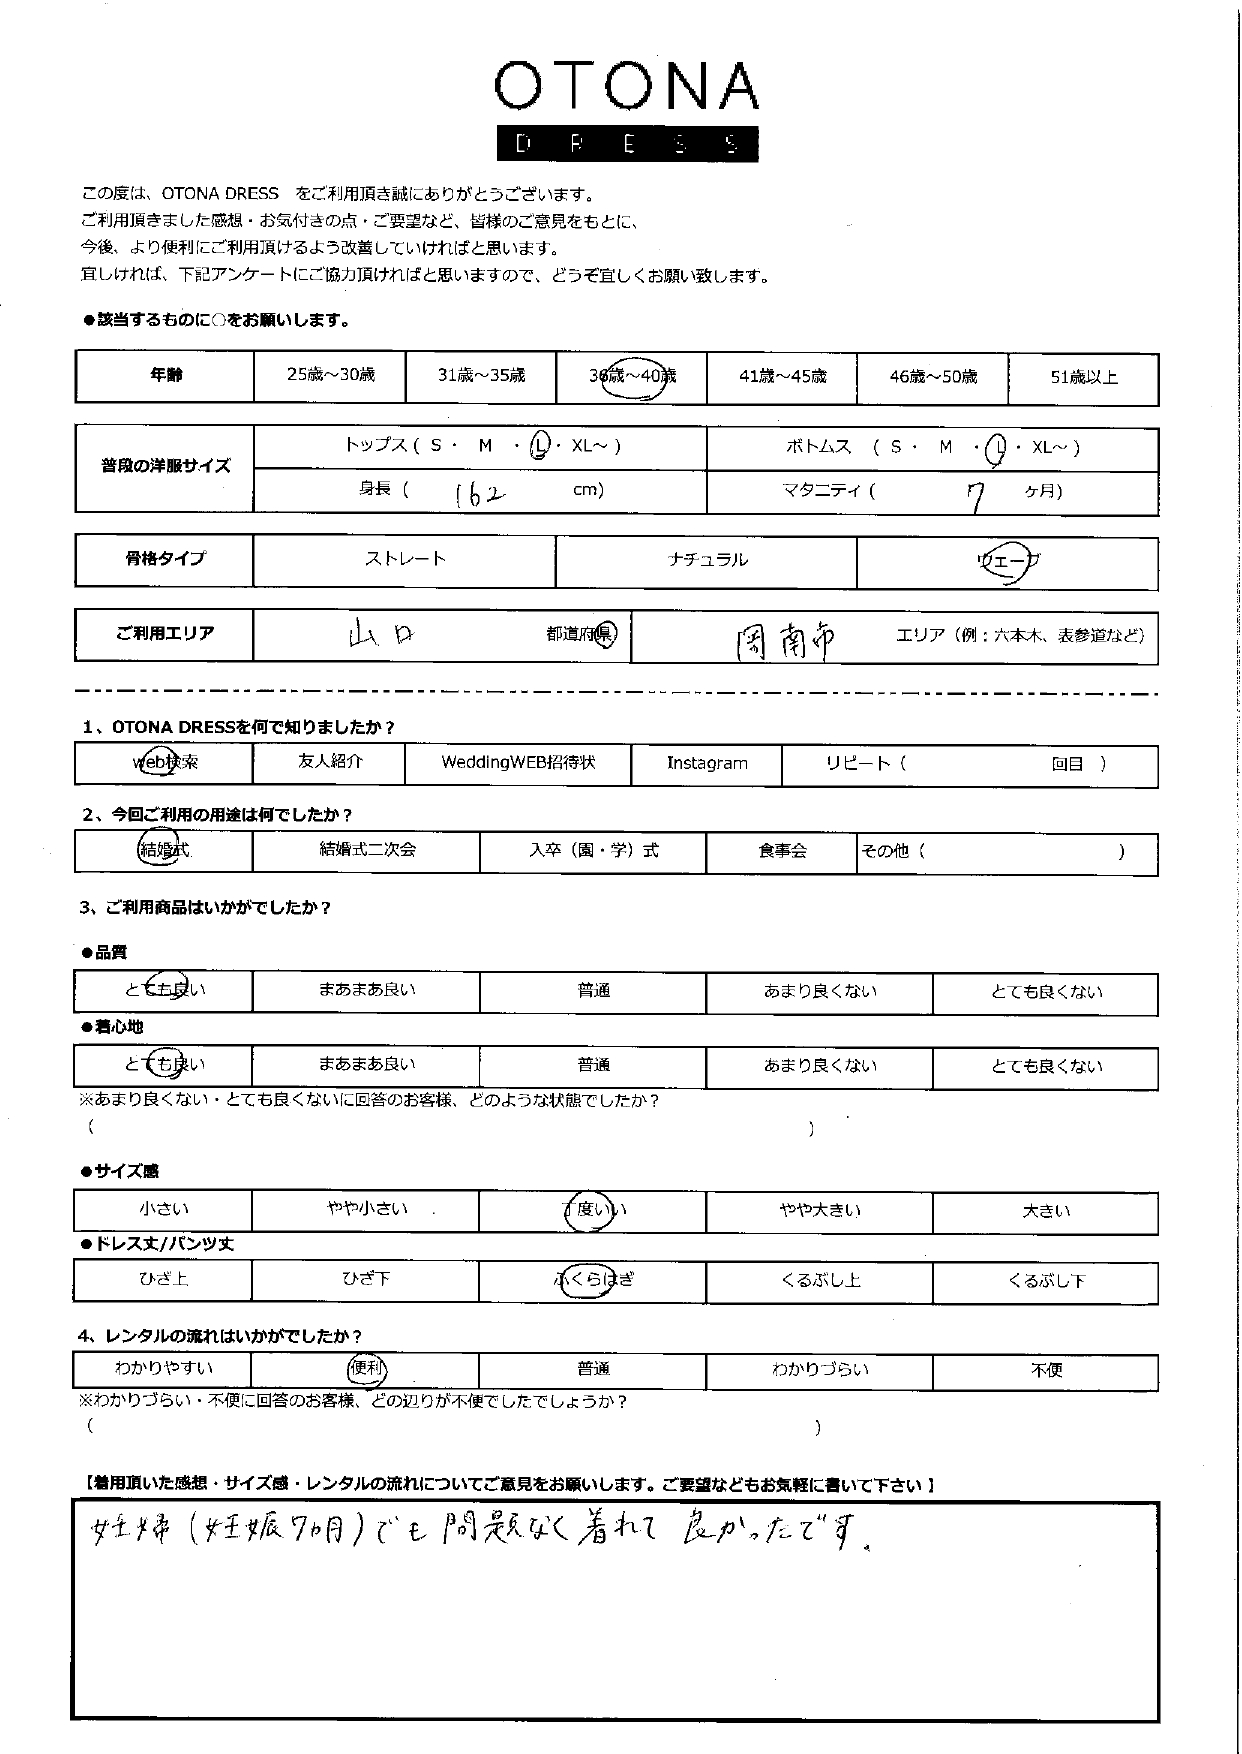 OTONA
DRESS
この度は、OTONA DRESS　をご利用頂き誠にありがとうございます。
ご利用頂きました感想・お気付きの点・ご要望など、皆様のご意見をもとに、
今後、より便利にご利用頂けるよう改善していければと思います。
宜しければ、下記アンケートにご協力頂ければと思いますので、どうぞ宜しくお願い致します。
●該当するものに○をお願いします。
年齢 25歳～30歳 31歳～35歳 36歳～40歳 41歳～45歳 46歳～50歳 51歳以上
普段の洋服サイズ トップス ( S ・ M ・ L ・ XL～ ) ボトムス ( S ・ M ・ L ・ XL～ )
身長 ( 162 cm) マタニティ ( 7 ヶ月)
骨格タイプ ストレート ナチュラル ウェーブ
ご利用エリア 山口 都道府県 周南市 エリア（例：六本木、表参道など）
1、OTONA DRESSを何で知りましたか？
web検索 友人紹介 WeddingWEB招待状 Instagram リピート ( 回目 )
2、今回ご利用の用途は何でしたか？
結婚式 結婚式二次会 入卒（園・学）式 食事会 その他 ( )
3、ご利用商品はいかがでしたか？
●品質
とても良い まあまあ良い 普通 あまり良くない とても良くない
●着心地
とても良い まあまあ良い 普通 あまり良くない とても良くない
※あまり良くない・とても良くないに回答のお客様、どのような状態でしたか？
( )
●サイズ感
小さい やや小さい 丁度いい やや大きい 大きい
●ドレス丈/パンツ丈
ひざ上 ひざ下 ふくらはぎ くるぶし上 くるぶし下
4、レンタルの流れはいかがでしたか？
わかりやすい 便利 普通 わかりづらい 不便
※わかりづらい・不便に回答のお客様、どの辺りが不便でしたでしょうか？
( )
【着用頂いた感想・サイズ感・レンタルの流れについてご意見をお願いします。ご要望などもお気軽に書いて下さい】
妊婦(妊娠7ヵ月)でも問題なく着れて良かったです。